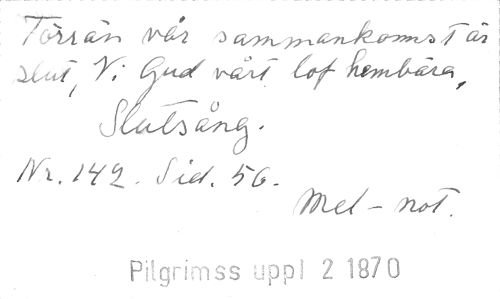 Förrän vår sammankomst är
slut, Vi Gud vårt lof hembära,
Slutsång.
Nr. 142. Sid. 56.
Mel-not.
Pilgrimss uppl 2 1870